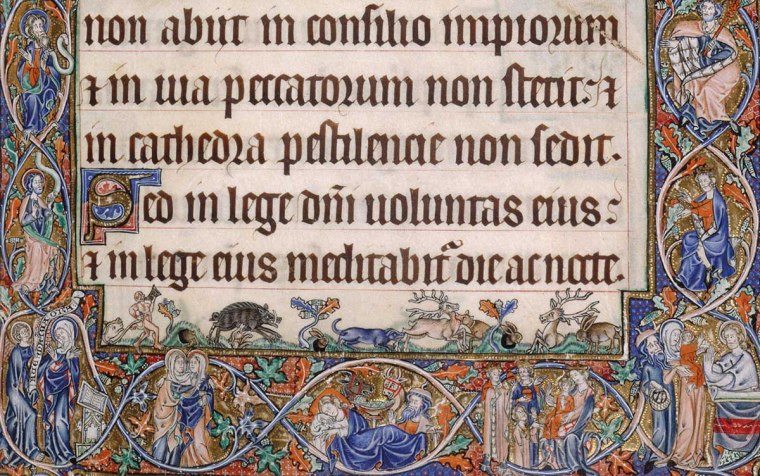 non abiit in consilio impiorum
⁊ in uia peccatorum non stetit: ⁊
in cathedra pestilencie non sedit.
Sed in lege dñi uoluntas eius:
⁊ in lege eius meditabit᷑ die ac nocte.